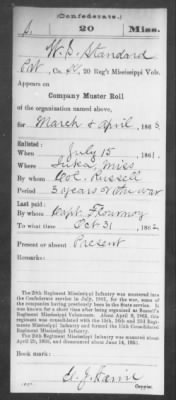 (Confederate.)
S. 20 Miss.
W. S. Standard
Pvt, Co. 20 Reg't Mississippi Vols.
Appears on
Company Muster Roll
of the organization named above,
for March & April, 1863.
Enlisted:
When July 15, 1861.
Where Iuka, Miss.
By whom Col. Russell
Period 3 years or the war
Last paid:
By whom Capt. Flournoy
To what time Oct 31, 1862.
Present or absent Present
Remarks:
The 20th Regiment Mississippi Infantry was mustered into
the Confederate service in July, 1861, for the war, some of
the companies having previously been in the State service. It
was known for a short time after being organized as Russell's
Regiment Mississippi Volunteers. About April 9, 1865, this
regiment was consolidated with the
Regiments Mississippi Infantry and formed the 15th Consolidated
Regiment Mississippi Infantry.
Book mark:
Copyist.